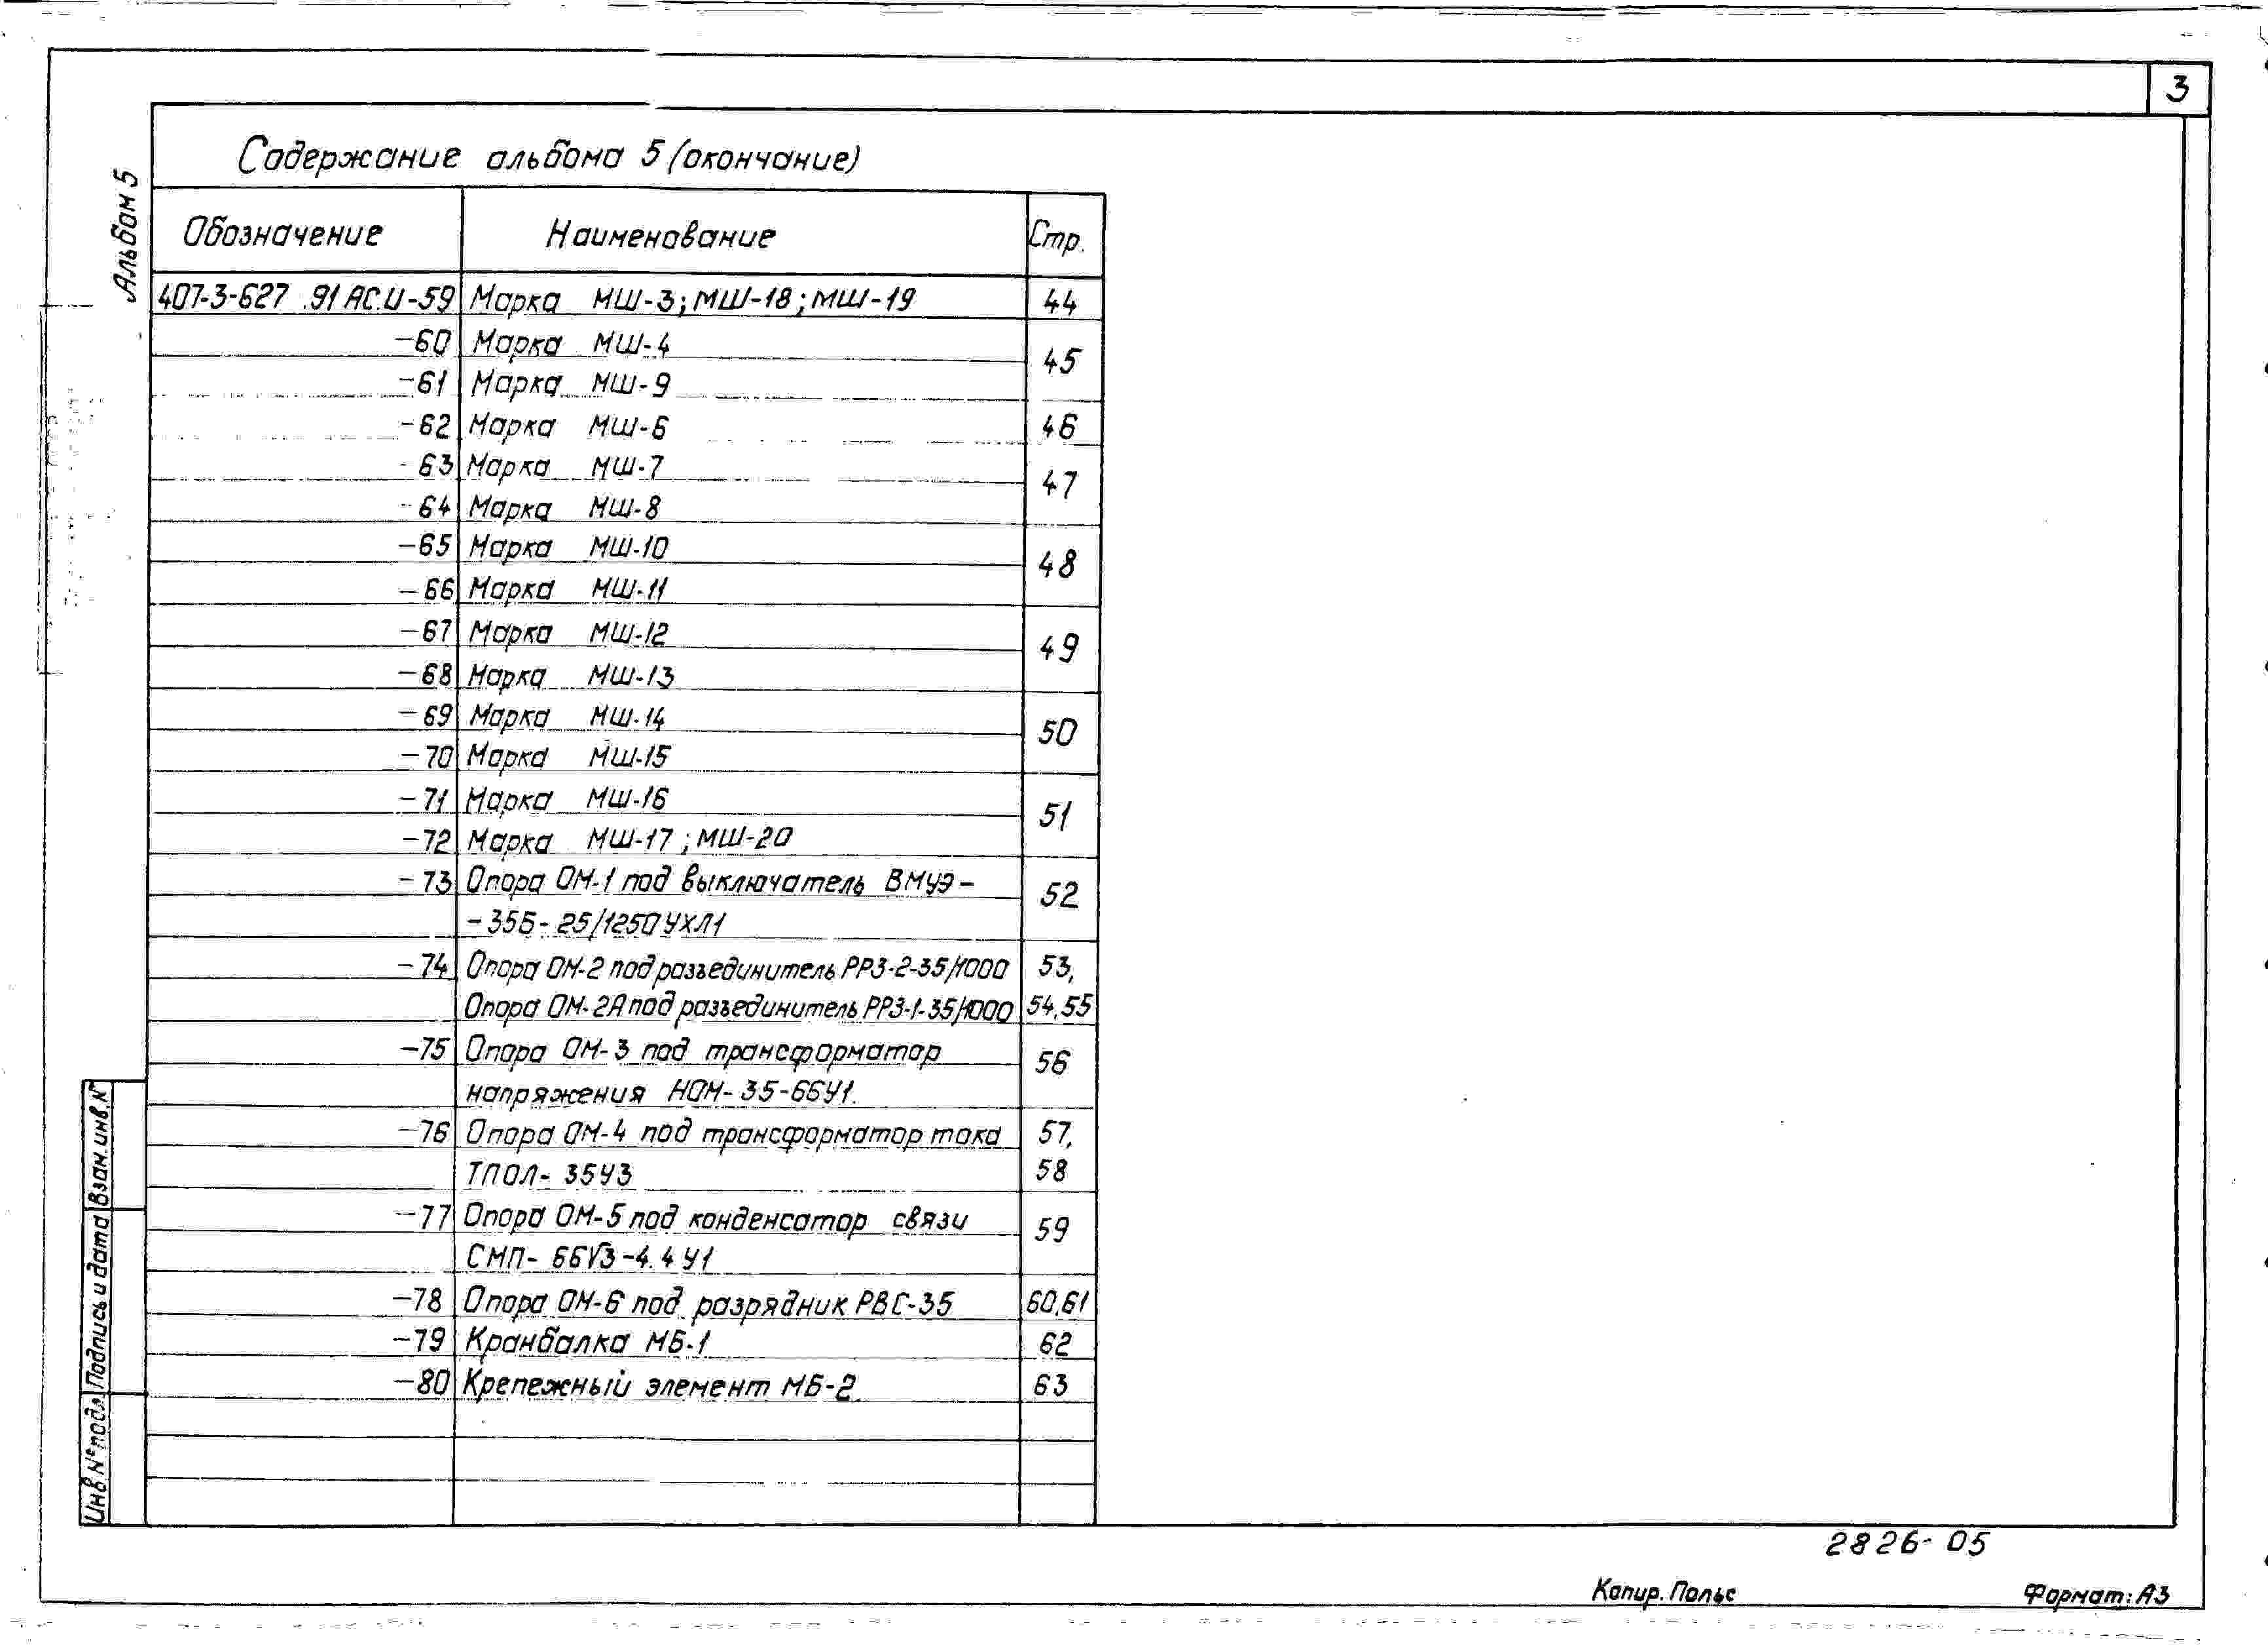 3
Альбом 5
Содержание альбома 5 (окончание)
Обозначение Наименование Стр.
407-3-627 .91 АС.И-59 Марка МШ-3; МШ-18; МШ-19 44
-60 Марка МШ-4 45
-61 Марка МШ-9
-62 Марка МШ-6 46
-63 Марка МШ-7 47
-64 Марка МШ-8
-65 Марка МШ-10 48
-66 Марка МШ-11
-67 Марка МШ-12 49
-68 Марка МШ-13
-69 Марка МШ-14 50
-70 Марка МШ-15
-71 Марка МШ-16 51
-72 Марка МШ-17; МШ-20
-73 Опора ОМ-1 под выключатель ВМУЭ- 52
-35Б-25/1250УХЛ1
-74 Опора ОМ-2 под разъединитель РРЗ-2-35/1000 53,
Опора ОМ-2А под разъединитель РРЗ-1-35/1000 54,55
-75 Опора ОМ-3 под трансформатор 56
напряжения НОМ-35-66У1.
-76 Опора ОМ-4 под трансформатор тока 57,
ТПОЛ-35У3 58
-77 Опора ОМ-5 под конденсатор связи 59
СМП-66√3-4.4У1
-78 Опора ОМ-6 под разрядник РВС-35 60,61
-79 Кранбалка МБ-1 62
-80 Крепежный элемент МБ-2 63
Взам.инв.№
Подпись и дата
Инв.№ подл.
2826-05
Копир. Польс
Формат: А3